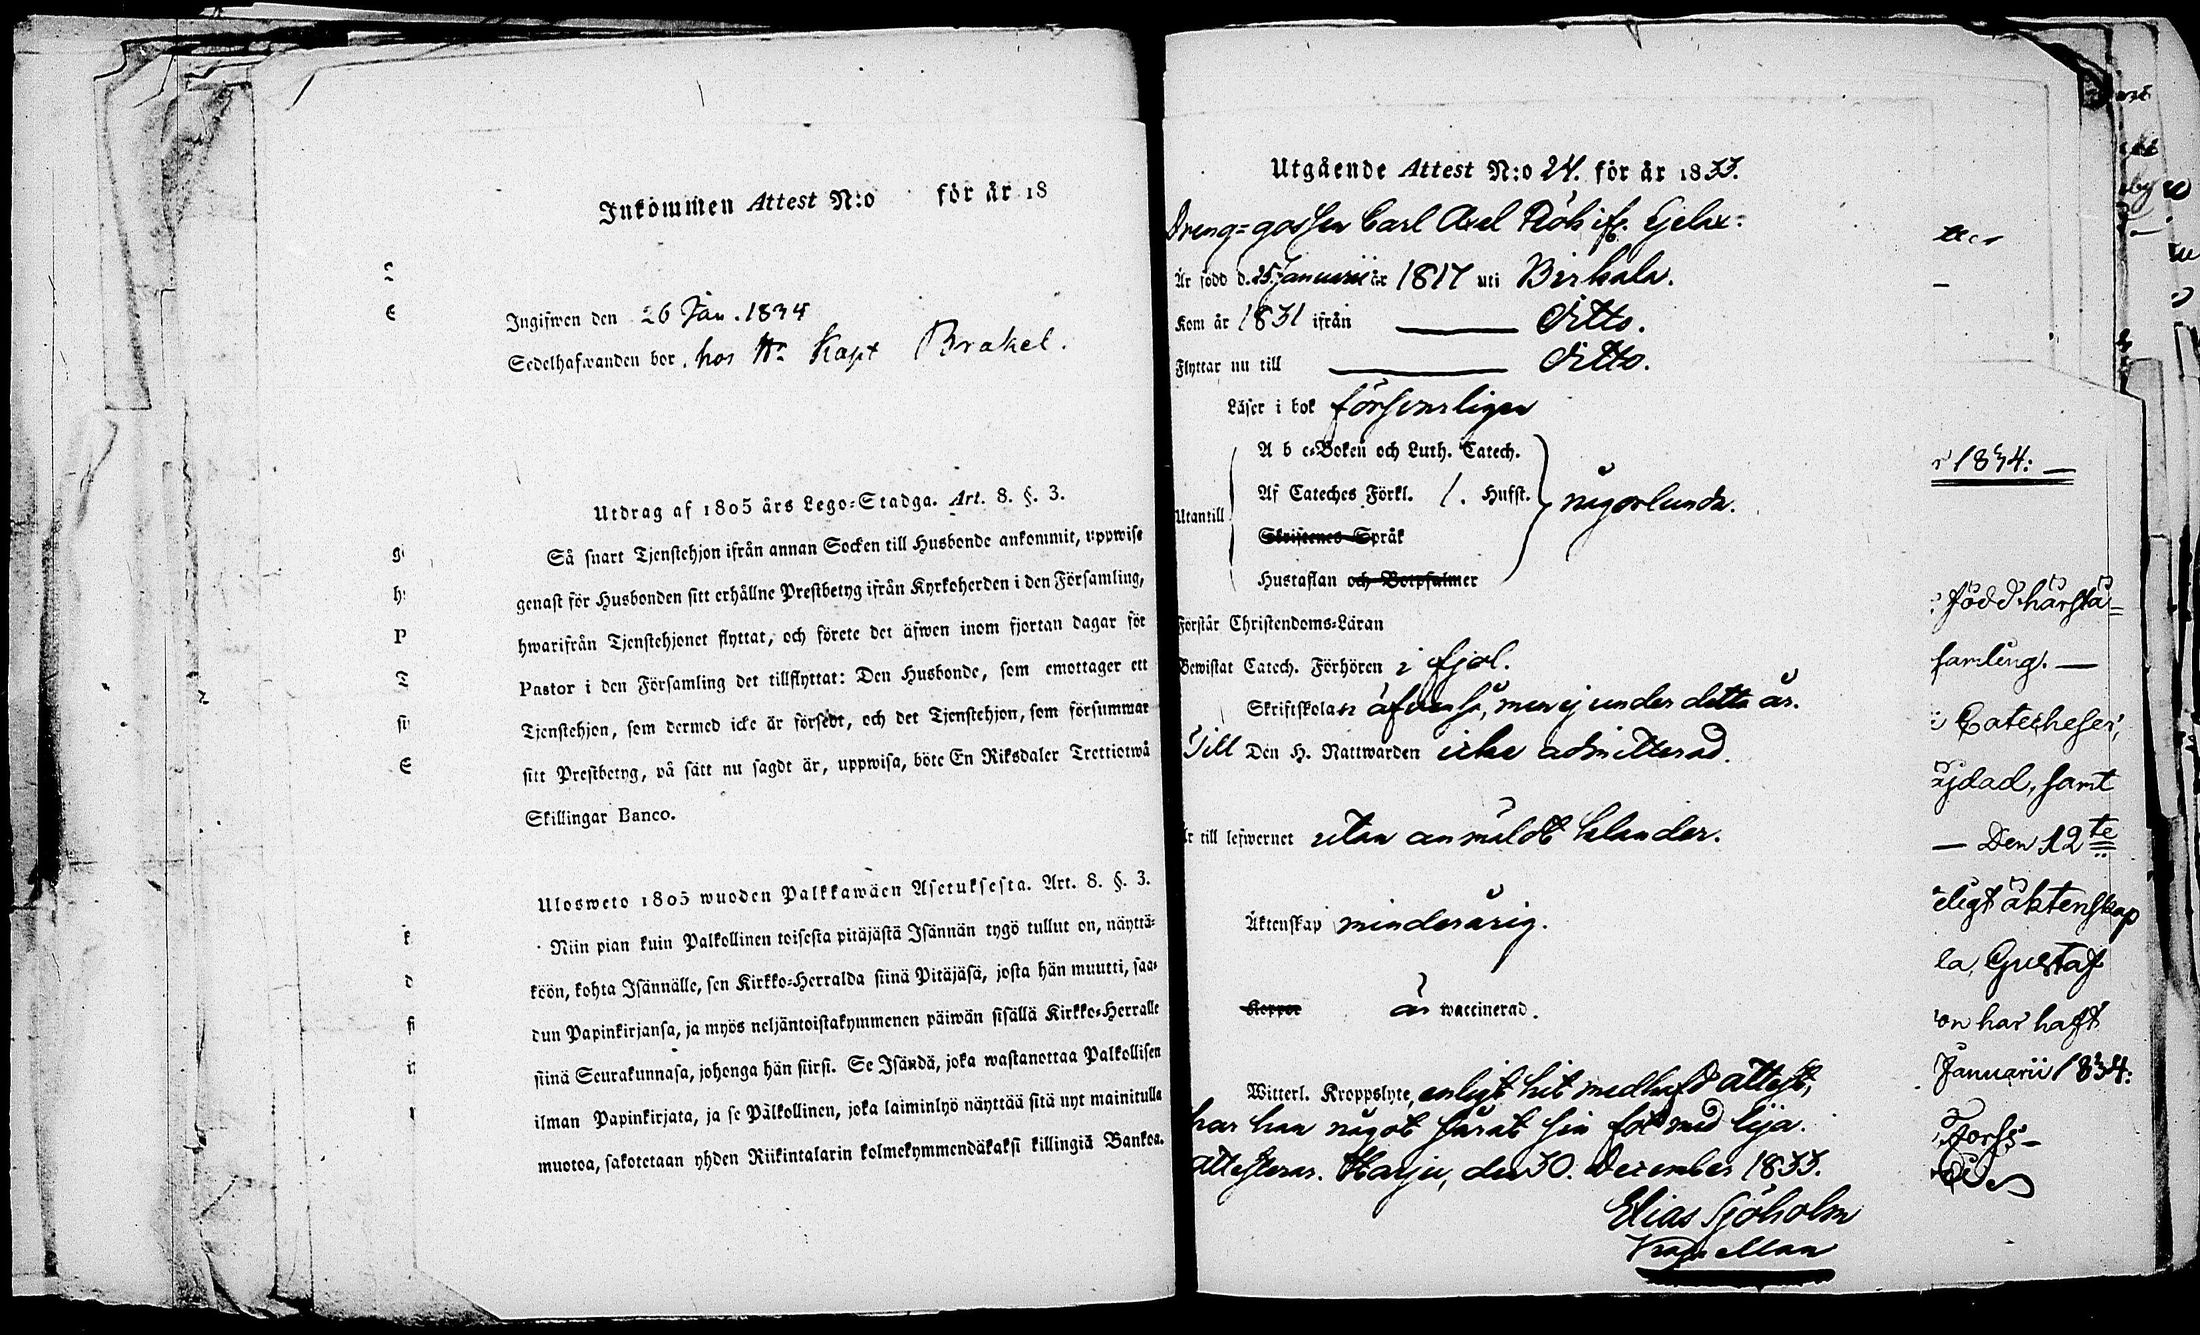 Inkommen Attest N:o för år 18
Ingifwen den 26 Jan. 1834
Sedelhafwanden bor hos Hr Kapt Brakel.
Utdrag af 1805 års Lego=Stadga. Art. 8. §. 3.
Så snart Tjenstehjon ifrån annan Socken till Husbonde ankommit, uppwise
genast för Husbonden sitt erhållne Prestbetyg ifrån Kyrkoherden i den Församling,
hwarifrån Tjenstehjonet flyttat, och förete det äfwen inom fjortan dagar för
Pastor i den Församling det tillflyttat: Den Husbonde, som emottager ett
Tjenstehjon, som dermed icke är försedt, och det Tjenstehjon, som försummar
sitt Prestbetyg, på sätt nu sagdt är, uppwisa, böte En Riksdaler Trettiotwå
Skillingar Banco.
Ulosweto 1805 wuoden Palkkawäen Asetuksesta. Art. 8. §. 3.
Niin pian kuin Palkollinen toisesta pitäjästä Isännän tygö tullut on, näyttä=
köön, kohta Isännälle, sen Kirkko=Herralda siinä Pitäjäsä, josta hän muutti, saa=
dun Papinkirjansa, ja myös neljäntoistakymmenen päiwän sisällä Kirkko=Herralle
siinä Seurakunnasa, johonga hän siirsi. Se Isändä, joka wastanottaa Palkollisen
ilman Papinkirjata, ja se Palkollinen, joka laiminlyö näyttää sitä nyt mainitulla
muotoa, sakotetaan yhden Riikintalarin kolmekymmendäkaksi killingiä Bankoa.
Utgående Attest N:o 24. för år 1833.
Dreng=gossen Carl Axel
Är född d. 25 Januarii år 1817 uti Birkala.
Kom år 1831 ifrån ditto.
Flyttar nu till ditto.
Läser i bok försvarligen
A b c=Boken och Luth. Catech.
Af Cateches Förkl. 1. Hufst.
Utantill någorlunda.
Skriftenes Språk
Hustaflan och Botpsalmer
Förstår Christendoms=Läran
Bewistat Catech. Förhören i fjol.
Skriftskolan äfvenså, men ej under detta år.
Till Den H. Nattwarden icke admitterad.
Är till lefwernet utan anmäldt klander.
Äktenskap minderårig.
Koppor är waccinerad.
Witterl. Kroppslyte, enligt hit medhafd attest,
har han något sårat sin fot med lija.
attesteras. Harju, den 30. December 1833.
Elias Sjöholm
Kapellan
r 1834:
född härstä=
samling.
i Catecheser,
samt
Den 12te
eligt äktenskap
la, Gustaf
on har haft
Januarii 1834: